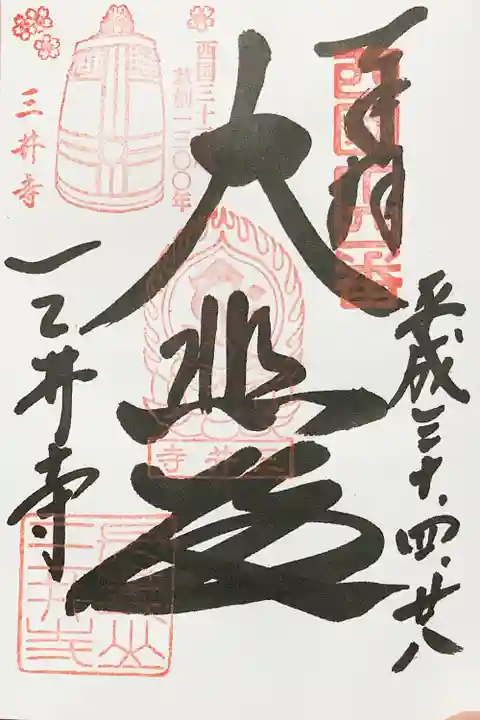 奉拝
西国十四番
平成三十.四.廿八
大悲殿
西国三十三
草創一三〇〇年
三井寺
三井寺
三井寺
長等山
三井寺